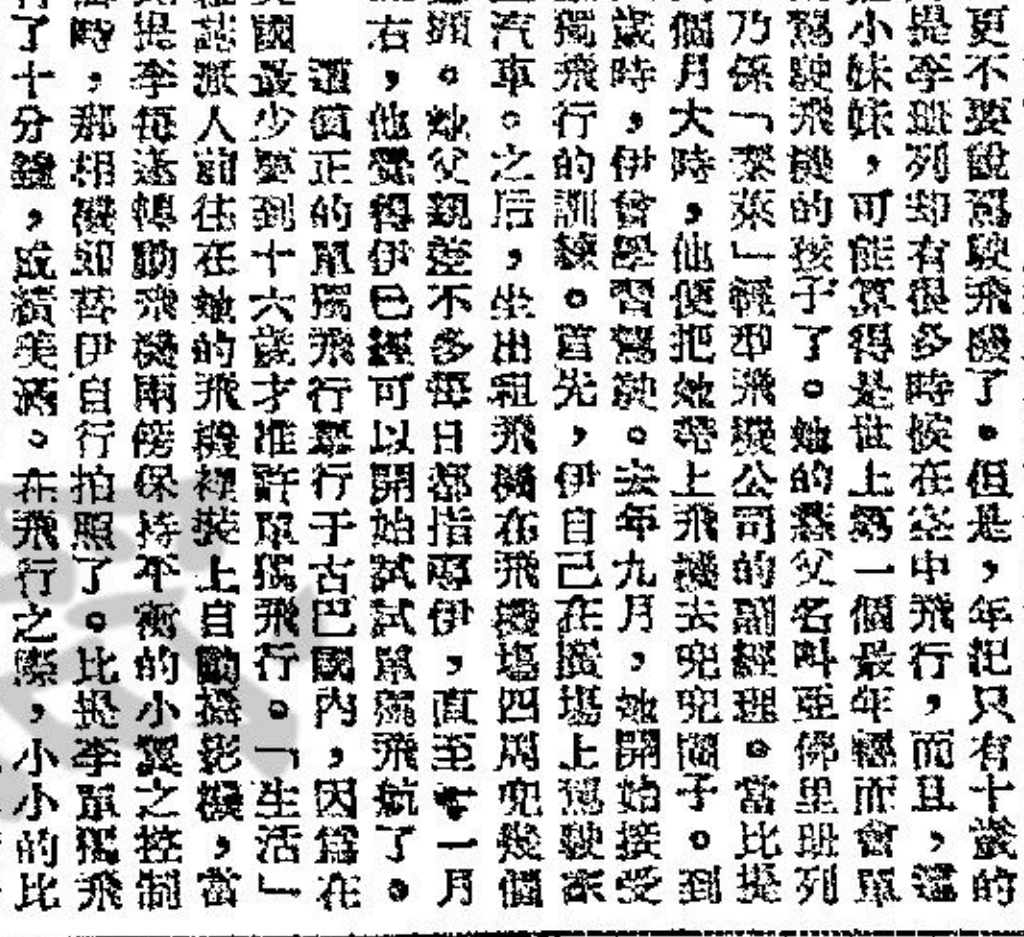 更不要說駕駛飛機了。但是，年祀只有十歲的
是李班列却有很多時候在空中飛行，而且，這
小妹妹，可能算得是世上第一個最年輕而會單
駕駛飛機的孩子了。她的爇父名叫亞佛里班列
乃係「派來」輕型飛機公司的副經理。當比提
個月大時，他便把她帶上飛機去兜兜圈子。到
歲時，伊曾學習駕駛。去年九月，她開始接受
獨飛行的訓練。首先，伊自己在機場上駕駛蔽
汽車。之后，坐出租飛機在飛機場四周兜幾個
。她父親差不多每日都指導伊，直至一月
右，他覺得伊已經可以開始試試單獨飛航了。
這眞正的單獨飛行擧行于古巴國內，因爲在
國最少要到十六歲才准許單獨飛行。「生活」
誌派人前往在她的飛機裡裝上自動攝影機，當
提李每逢轉動飛機兩傍保持平衡的小翼之控制
時，那相機却替伊自行拍照了。比提李單獨飛
了十分鐘，成績美滿。在飛行之際，小小的比